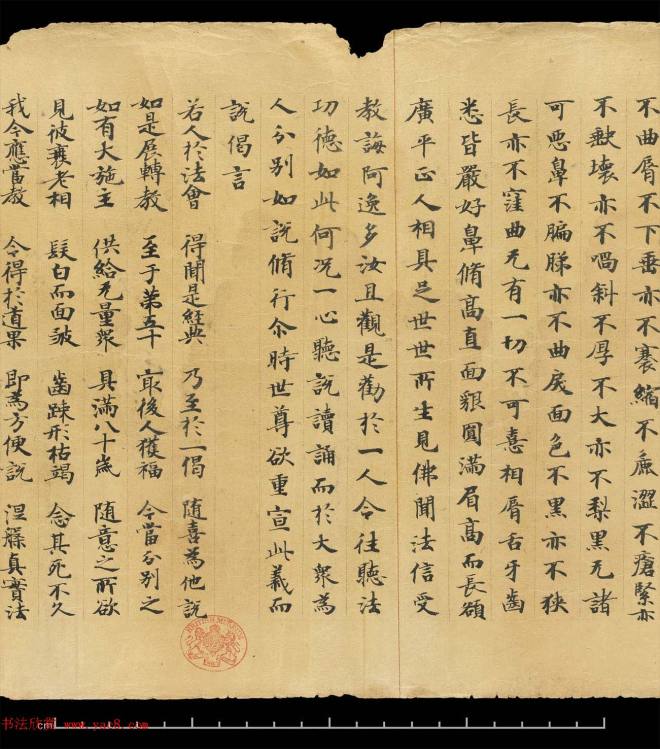 不曲脣不下垂亦不褰縮不麁澀不瘡緊亦
不缺壞亦不喎斜不厚不大亦不梨黑无諸
可惡鼻不𦟣睇亦不曲戾面色不黑亦不狹
長亦不窪曲无有一切不可憙相脣舌牙齒
悉皆嚴好鼻脩高直面貇圓滿眉高而長額
廣平正人相具足世世所生見佛聞法信受
教誨阿逸多汝且觀是勸於一人令往聽法
功德如此何況一心聽說讀誦而於大眾為
人分別如說脩行尒時世尊欲重宣此義而
說偈言
若人於法會 得聞是經典 乃至於一偈 隨喜為他說
如是展轉教 至于第五十 冣後人獲福 今當分別之
如有大施主 供給无量眾 具滿八十歲 隨意之所欲
見彼衰老相 髮白而面皺 齒踈形枯竭 念其死不久
我今應當教 令得於道果 即為方便說 涅槃真實法
BRITISH MUSEUM
书法欣赏 www.yac8.com
cm